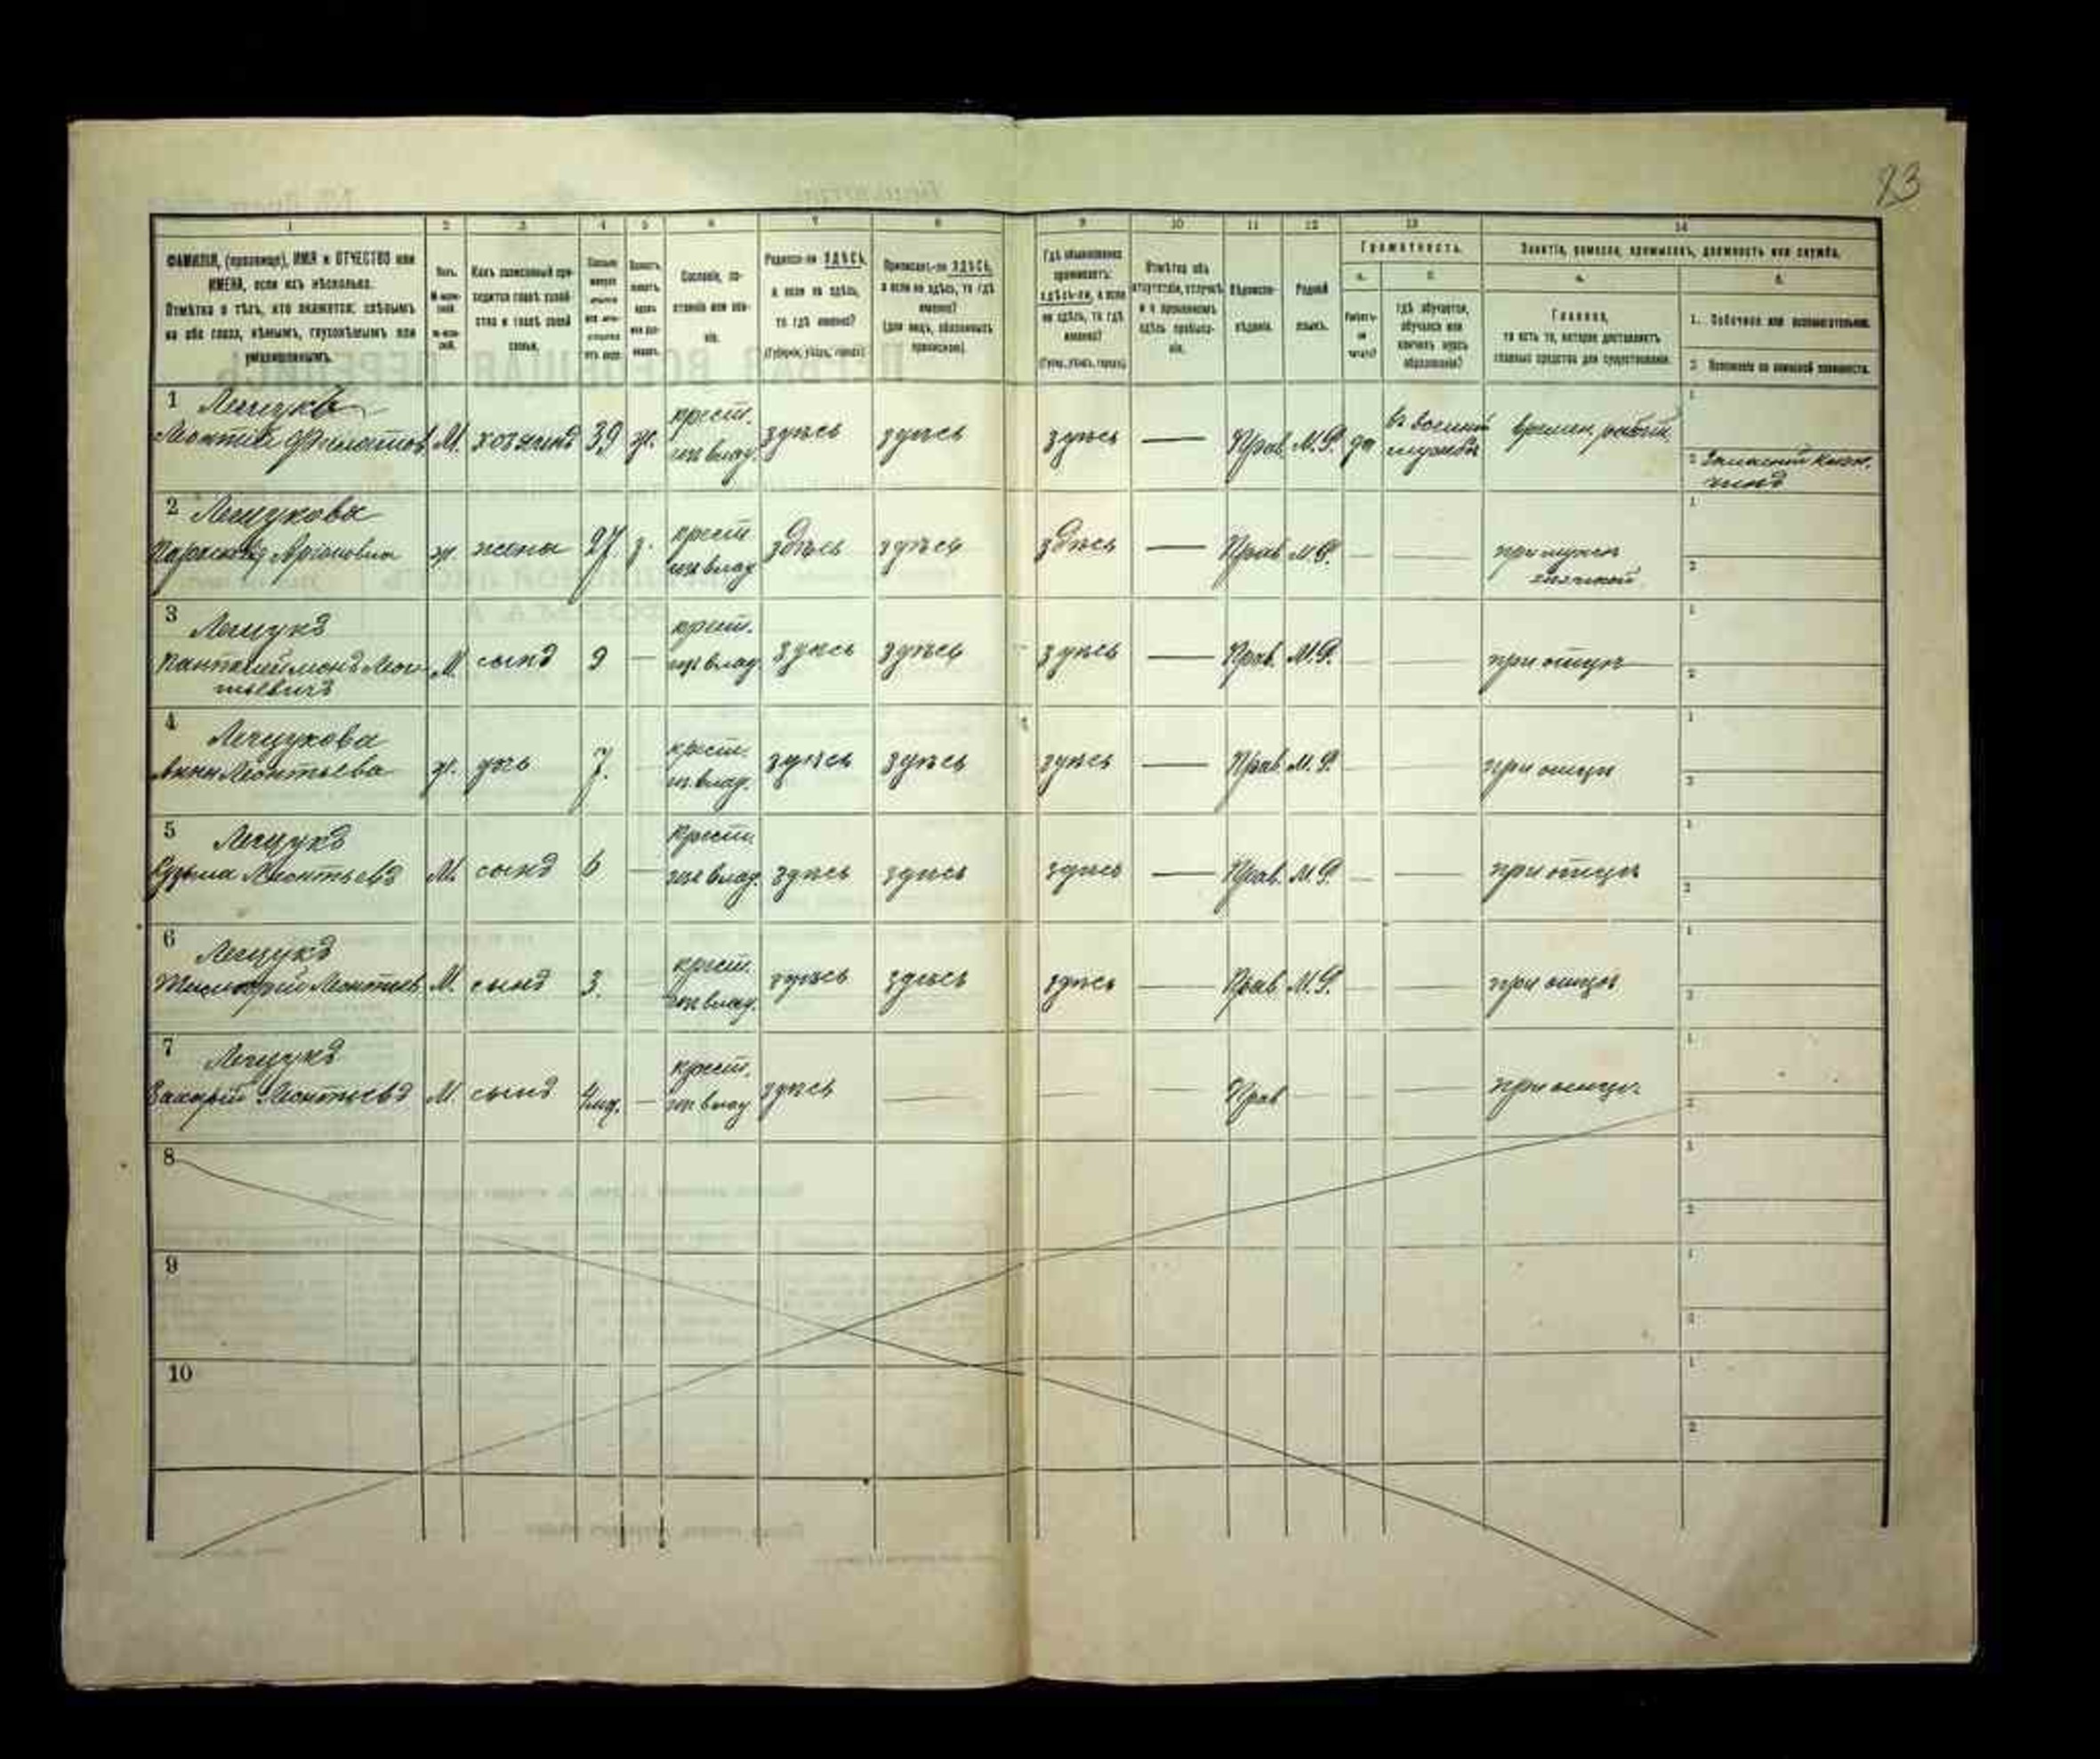 93
1 2 3 4 5 6 7 8 9 10 11 12 13 14
ФАМИЛІЯ, (прозвище), ИМЯ и ОТЧЕСТВО или
ИМЕНА, если ихъ нѣсколько.
Отмѣтка о тѣхъ, кто окажется: слѣпымъ
на оба глаза, нѣмымъ, глухонѣмымъ или
умалишеннымъ.
Полъ.
Какъ записанный при-
ходится главѣ хозяй-
ства и главѣ своей
семьи.
Сословіе, со-
стояніе или зва-
ніе.
Родился-ли ЗДѢСЬ,
а если не здѣсь,
то гдѣ именно?
(Губернія, уѣздъ, городъ)
Приписанъ-ли ЗДѢСЬ,
а если не здѣсь, то гдѣ
именно?
(для лицъ, обязанныхъ
припискою).
Гдѣ обыкновенно
проживаетъ:
здѣсь-ли, а если
не здѣсь, то гдѣ
именно?
(Губер., уѣздъ, городъ)
Отмѣтка объ
отсутствіи, отлучкѣ
и о временномъ
здѣсь пребыва-
ніи.
Вѣроиспо-
вѣданіе.
Родной
языкъ.
Грамотность.
а. б.
Умѣетъ-
ли
читать?
гдѣ обучается,
обучался или
кончилъ курсъ
образованія?
Занятіе, ремесло, промыселъ, должность или служба.
а. б.
Главное,
то есть то, которое доставляетъ
главныя средства для существованія.
1. Побочное или вспомогательное.
2. Положеніе по воинской повинности.
1 Лещукъ
Леонтій Филатовъ М. хозяинъ 39 ж. крест. изъ влад. здѣсь здѣсь здѣсь — Прав. М.Р. да въ военной службѣ времен. работн.
2 Запасный нижн.
чинъ
2 Лещукова
ж. жена 27. з. крест изъ влад здѣсь здѣсь здѣсь — Прав М.Р. — — при мужѣ
3 Лещукъ
Пантелеймонъ Леон-
тьевичъ М. сынъ 9 — крест. изъ влад. здѣсь здѣсь здѣсь — Прав. М.Р. — — при отцѣ
4 Лещукова
Анна Леонтьева ж. дочь 7. крест. изъ влад. здѣсь здѣсь здѣсь — Прав. М.Р. — — при отцѣ
5 Лещукъ
Кузьма Леонтьевъ М. сынъ 6 — крест. изъ влад. здѣсь здѣсь здѣсь — Прав. М.Р. — — при отцѣ
6 Лещукъ
Леонтьев. М. сынъ 3. крест. изъ влад. здѣсь здѣсь здѣсь — Прав М.Р. — — при отцѣ
7 Лещукъ
Захарій Леонтьевъ М сынъ 4 мѣ. — крест. изъ влад здѣсь — — — Прав — — — при отцѣ
8
9
10